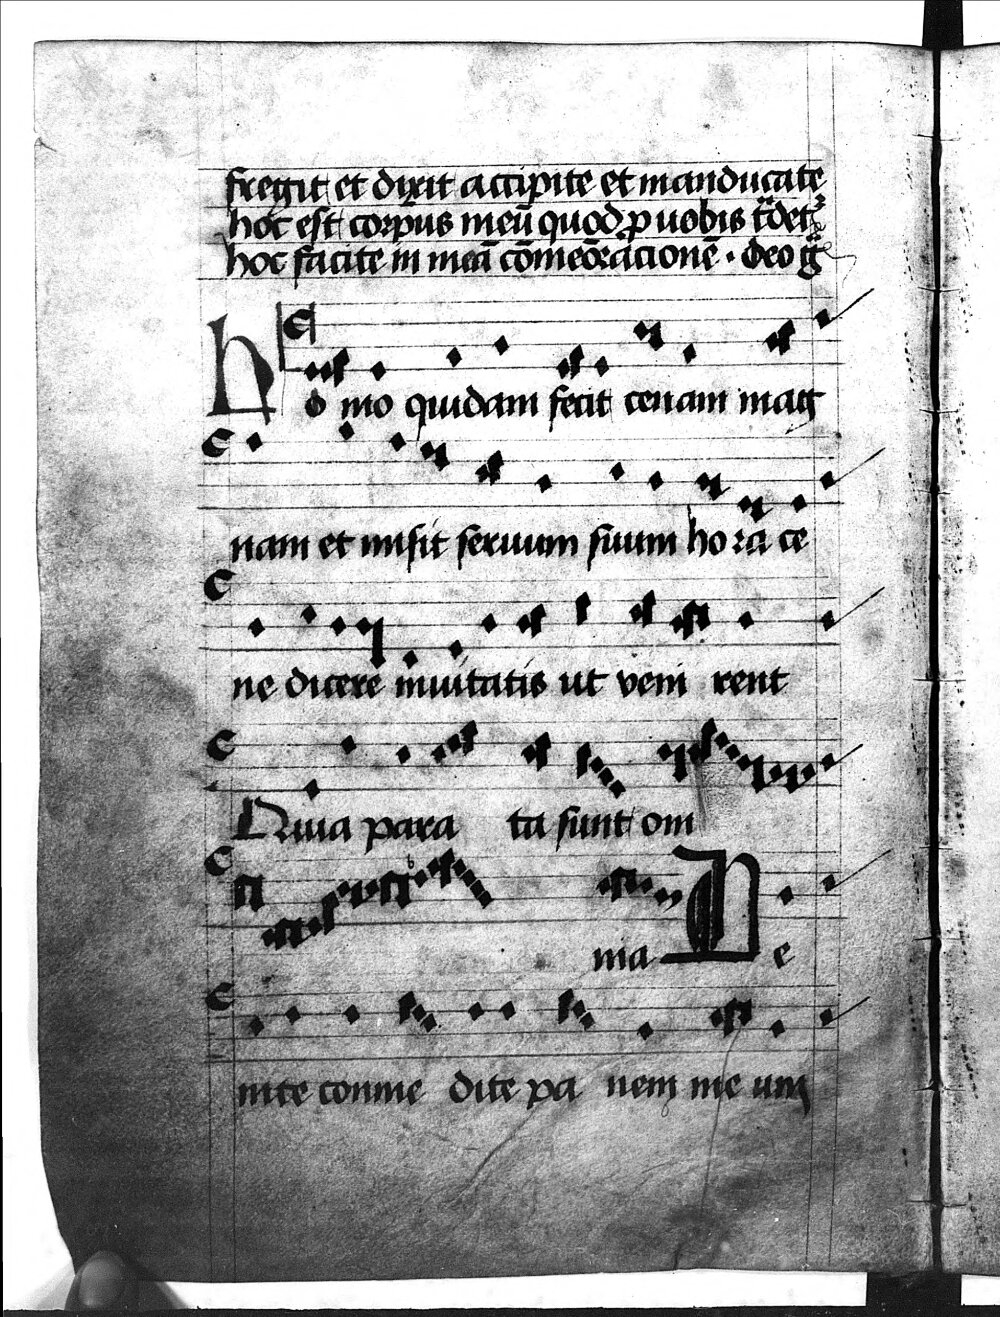 fregit et dixit accipite et manducate
hoc est corpus meū quod p uobis t̄det᷒
hoc facite in meā cōmeōracionē · deo g̃
Ho mo quidam fecit cenam mag
nam et misit seruum suum ho ra ce
ne dicere inuitatis ut veni rent
Quia para ta sunt om
nia Ve
nite comme dite pa nem me um